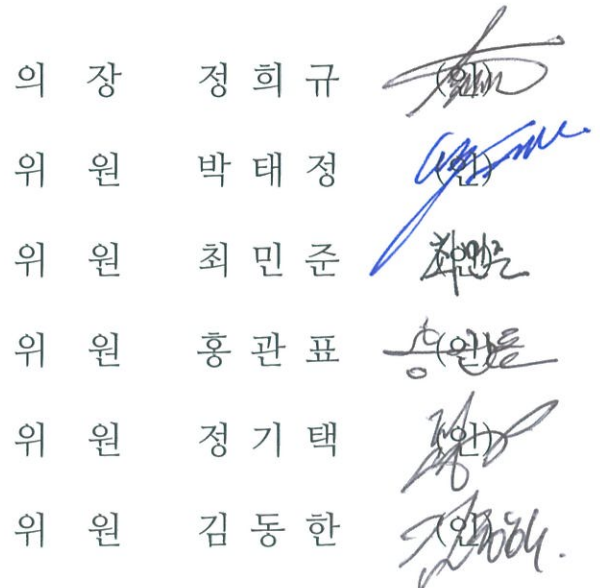 의 장 정 희 규 (인)
위 원 박 태 정 (인)
위 원 최 민 준 (인)
위 원 홍 관 표 (인)
위 원 정 기 택 (인)
위 원 김 동 한 (인)